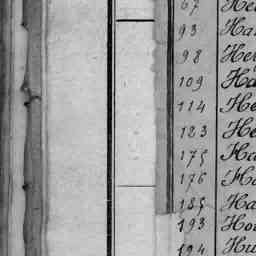 67 He
93 Ha
98 He
109 Ha
114 He
123 He
175 Ha
176 Ha
185 Ha
193 Ho
194 Hu